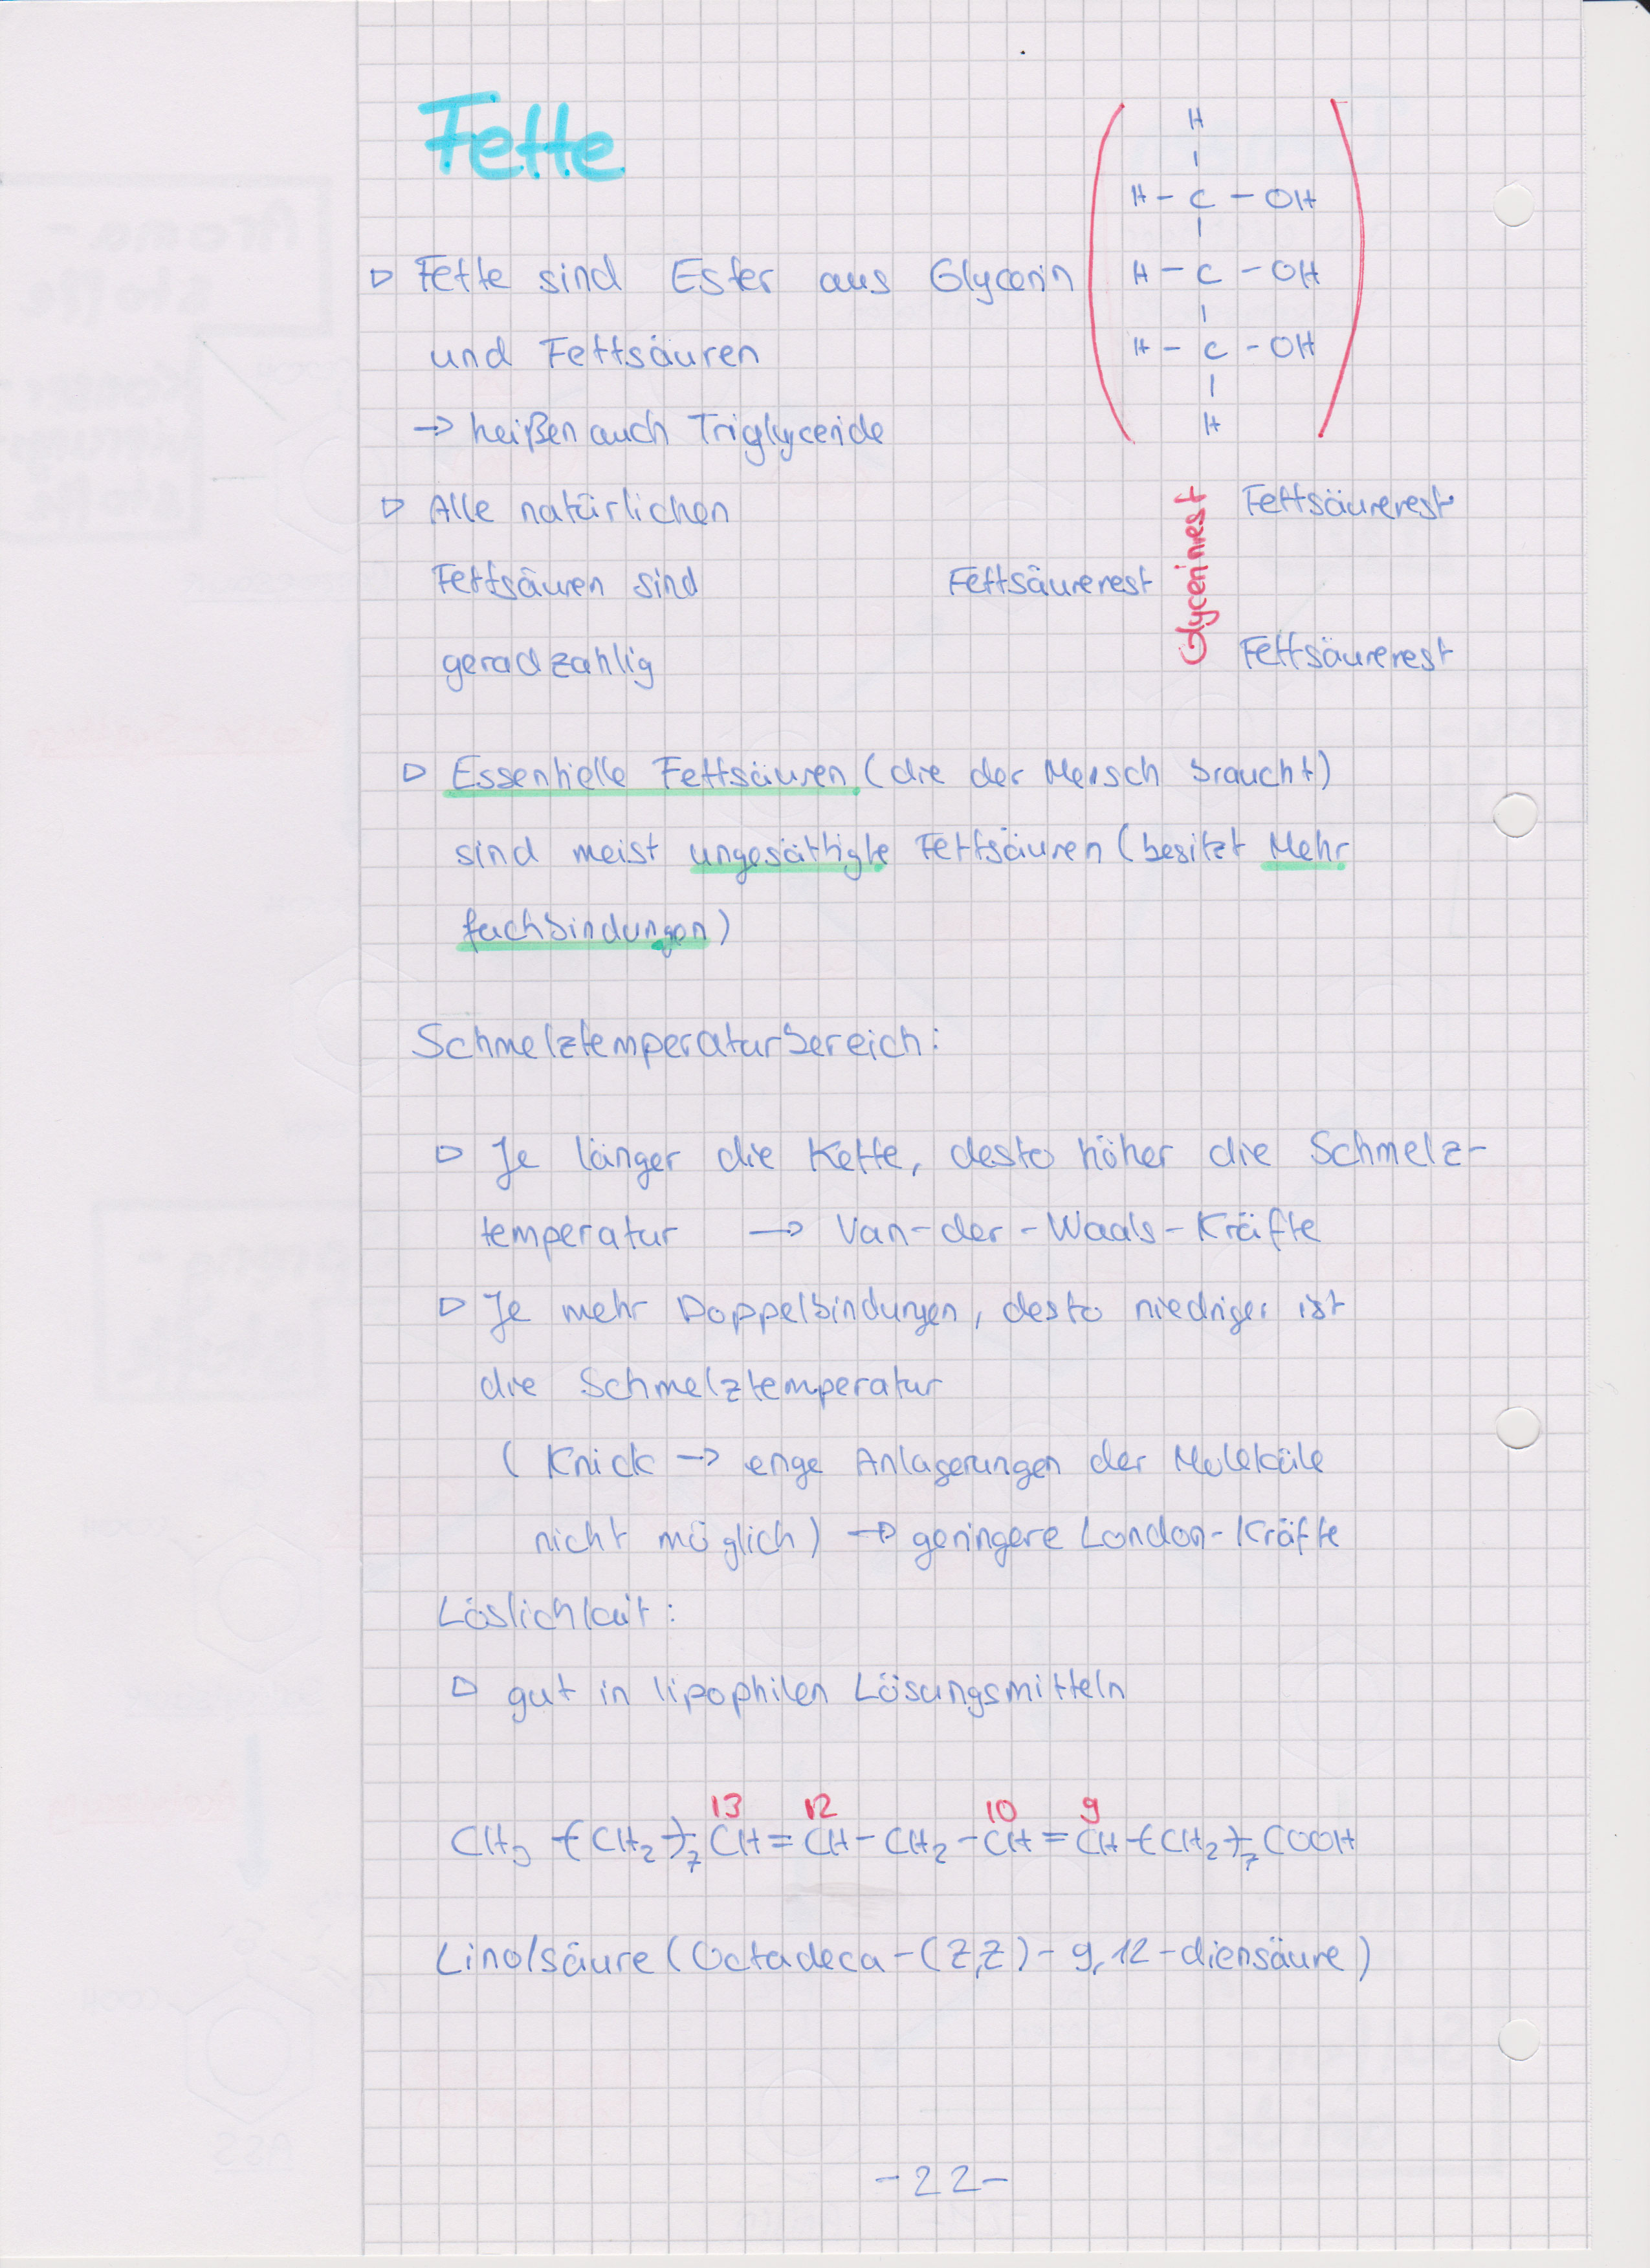 Fette
H
|
H - C - OH
|
▷ Fette sind Ester aus Glycerin H - C - OH
|
und Fettsäuren H - C - OH
|
→ heißen auch Triglyceride H
▷ Alle natürlichen Fettsäurerest
Fettsäuren sind Fettsäurerest Glycerinrest
geradzahlig Fettsäurerest
▷ Essentielle Fettsäuren (die der Mensch braucht)
sind meist ungesättigte Fettsäuren (besitzt Mehr
fachbindungen)
Schmelztemperaturbereich:
▷ Je länger die Kette, desto höher die Schmelz-
temperatur → Van-der-Waals-Kräfte
▷ Je mehr Doppelbindungen, desto niedriger ist
die Schmelztemperatur
(Knick → enge Anlagerungen der Moleküle
nicht möglich) → geringere London-Kräfte
Löslichkeit:
▷ gut in lipophilen Lösungsmitteln
13 12 10 9
CH3 -(CH2)-7 CH = CH - CH2 - CH = CH -(CH2)-7 COOH
Linolsäure (Octadeca-(Z,Z)-9,12-diensäure)
-22-